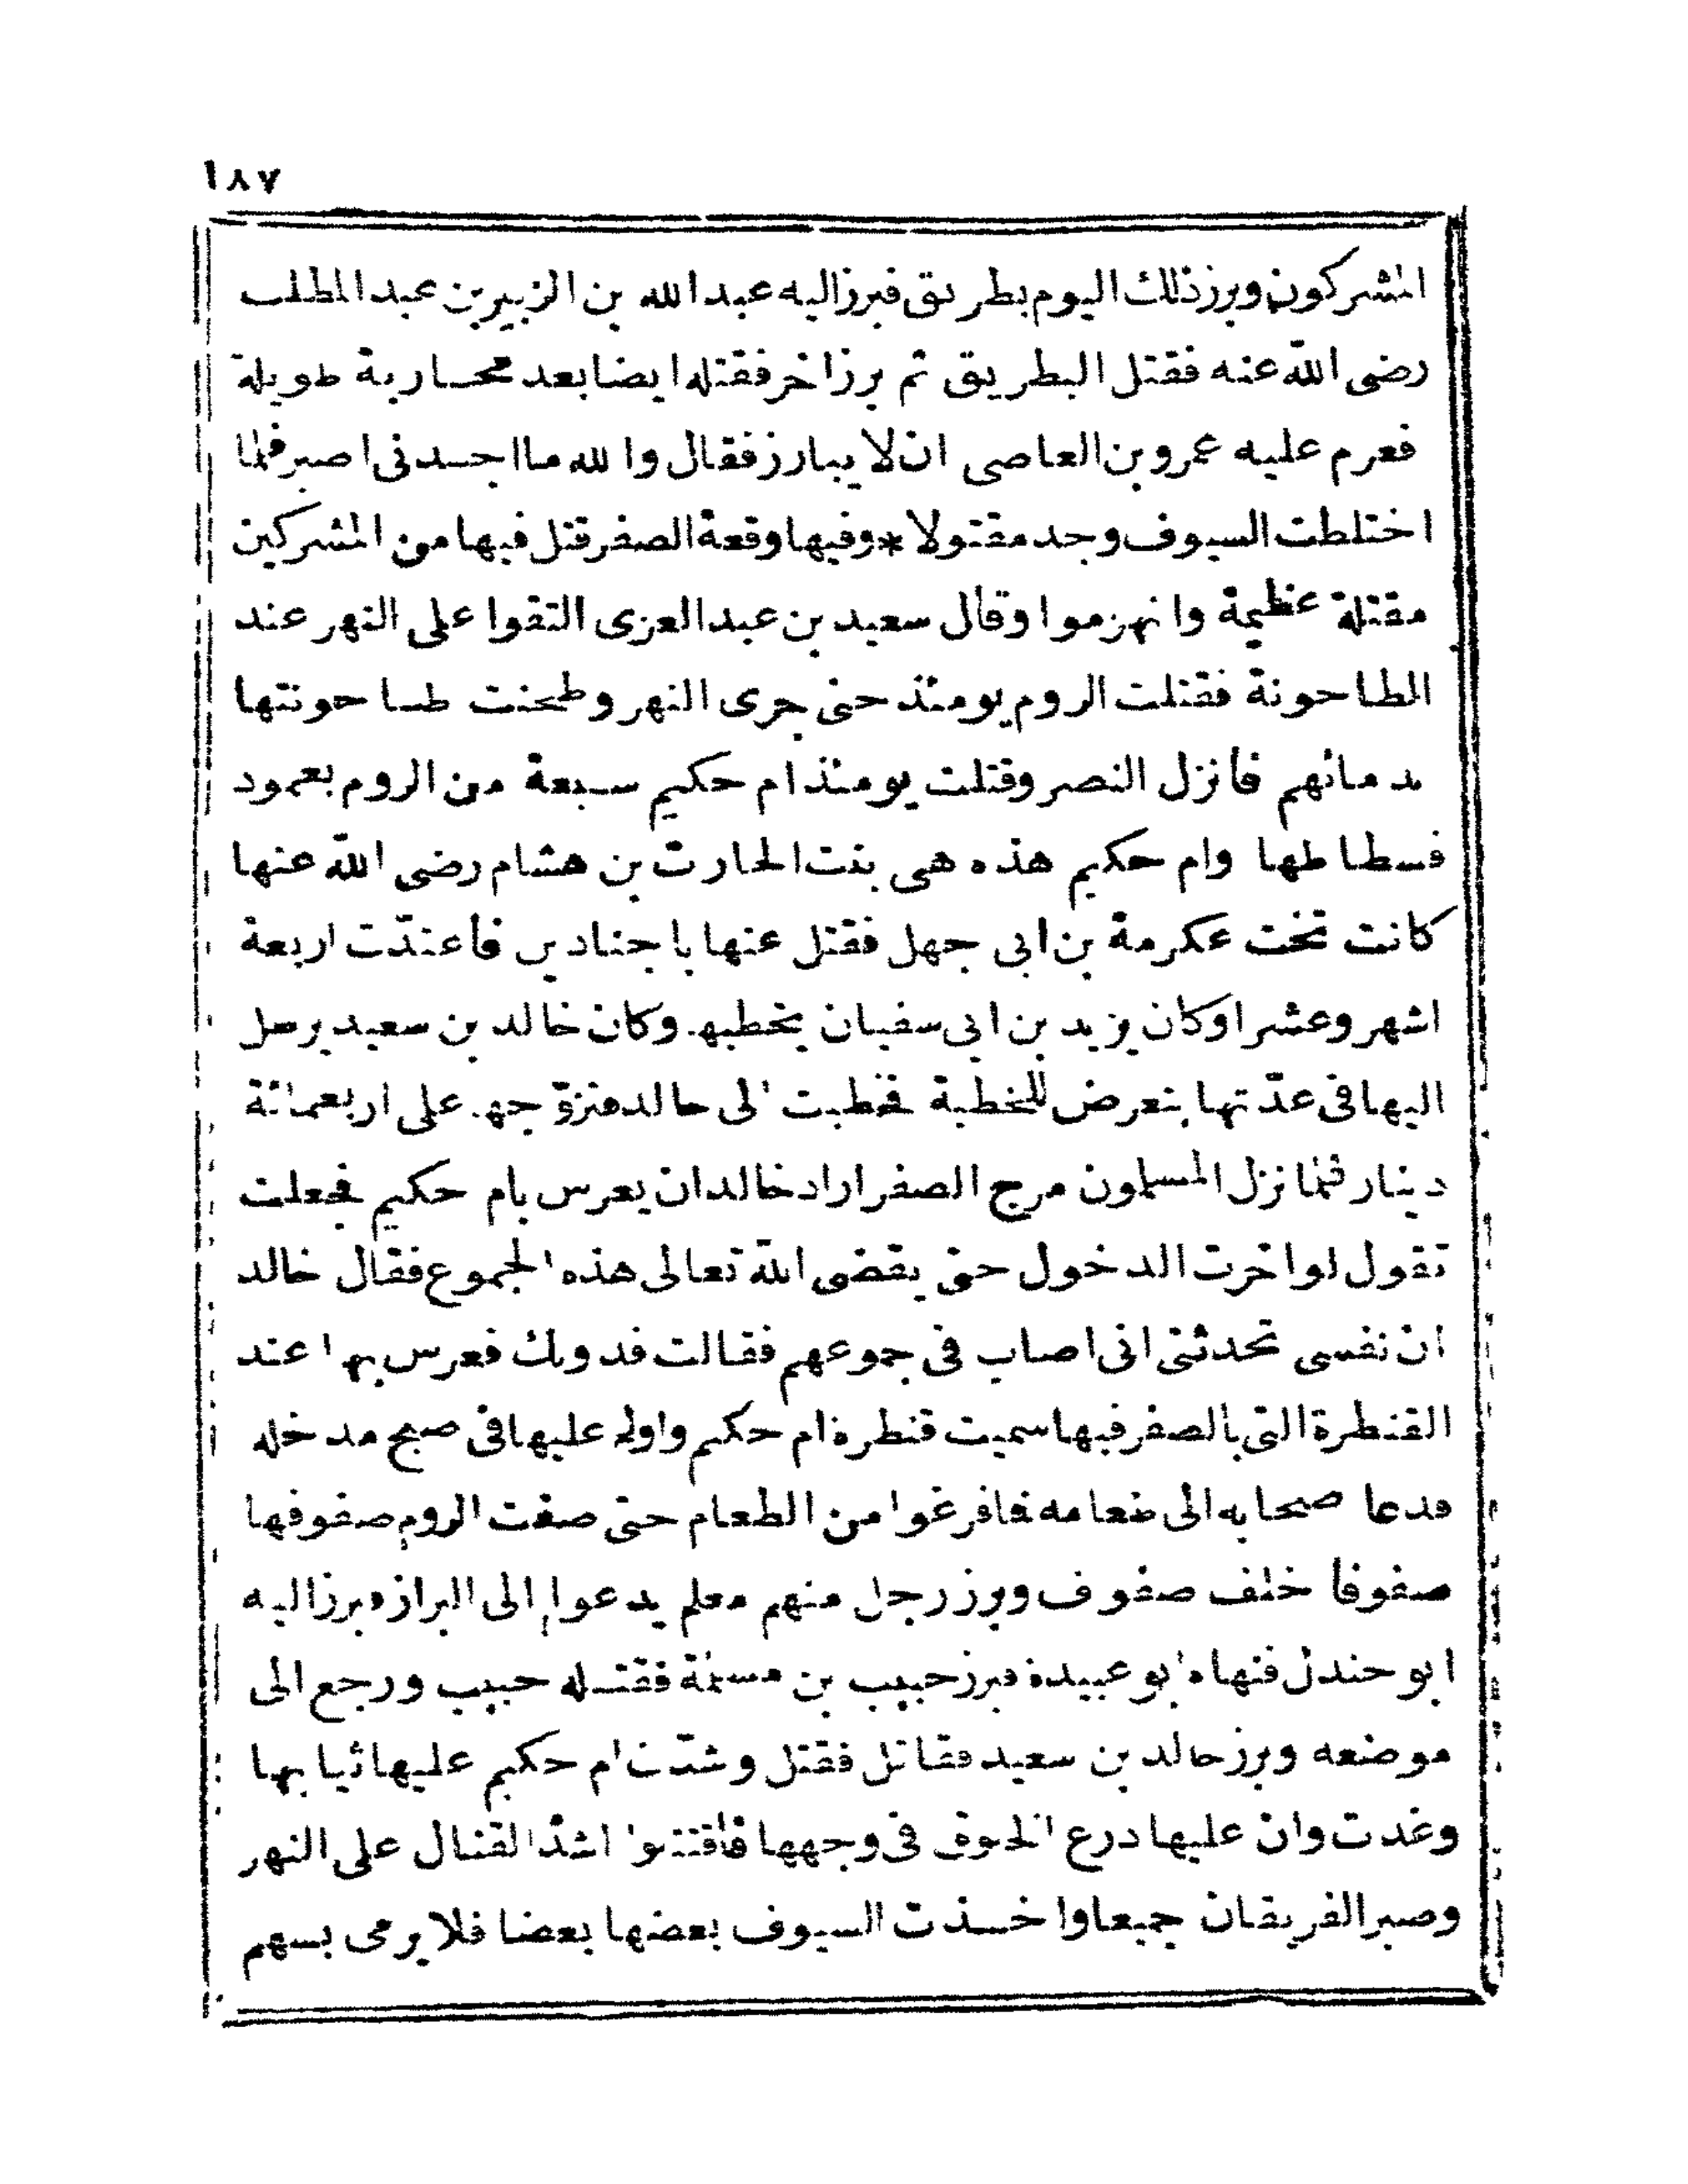 ١٨٧
المشركون وبرز ذلك اليوم بطريق فبرز اليه عبد الله بن الزبير بن عبد المطلب
رضى الله عنه فقتل البطريق ثم برز اخر فقتله ايضا بعد محاربة طويلة
فعرم عليه عمرو بن العاصى ان لا يبارز فقال والله ما اجدنى اصبر فلما
اختلطت السيوف وجد مقتولا * وفيها وقعة الصفر قتل فيها من المشركين
مقتلة عظيمة وانهزموا وقال سعيد بن عبد العزى التقوا على النهر عند
الطاحونة فقتلت الروم يومئذ حتى جرى النهر وطحنت طاحونتها
بدمائهم فأنزل النصر وقتلت يومئذ ام حكيم سبعة من الروم بعمود
فسطاطها وام حكيم هذه هى بنت الحارث بن هشام رضى الله عنها
كانت تحت عكرمة بن ابى جهل فقتل عنها باجنادين فأعتدّت اربعة
اشهر وعشرا وكان يزيد بن ابى سفيان يخطبها وكان خالد بن سعيد يرسل
اليها فى عدّتها يتعرض للخطبة فخطبت الى خالد فتزوّجها على اربعمائة
دينار فلما نزل المسلمون مرج الصفر اراد خالد ان يعرس بام حكيم فجعلت
تقول لو اخرت الدخول حتى يقضى الله تعالى هذه الجموع فقال خالد
ان نفسى تحدثنى انى اصاب فى جموعهم فقالت فدونك فعرس بها عند
القنطرة التى بالصفر فبها سميت قنطرة ام حكيم واولم عليها فى صبح مدخله
فدعا صحابه الى طعامه فافرغوا من الطعام حتى صفت الروم صفوفها
صفوفا خلف صفوف وبرز رجل منهم معلم يدعوا الى البراز فبرز اليه
ابو جندل فنهاه ابو عبيدة فبرز حبيب بن مسلمة فقتله حبيب ورجع الى
موضعه وبرز خالد بن سعيد فقاتل فقتل وشدّت ام حكيم عليها ثيابها
وغدت وان عليها درع الخلوق فى وجهها فاقتتلوا اشدّ القتال على النهر
وصبر الفريقان جميعا واخذت السيوف بعضها بعضا فلا يرمى بسهم